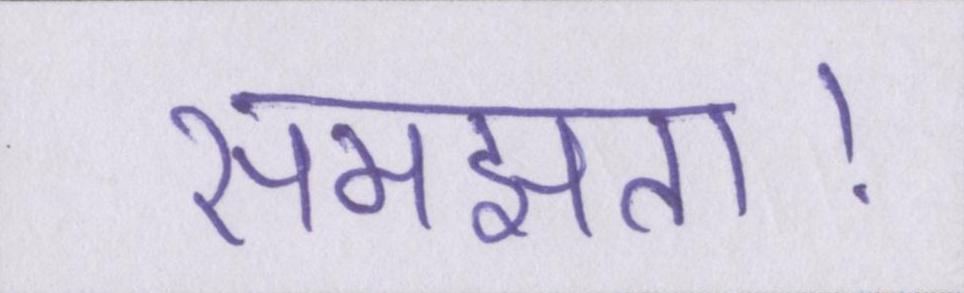 समझता!